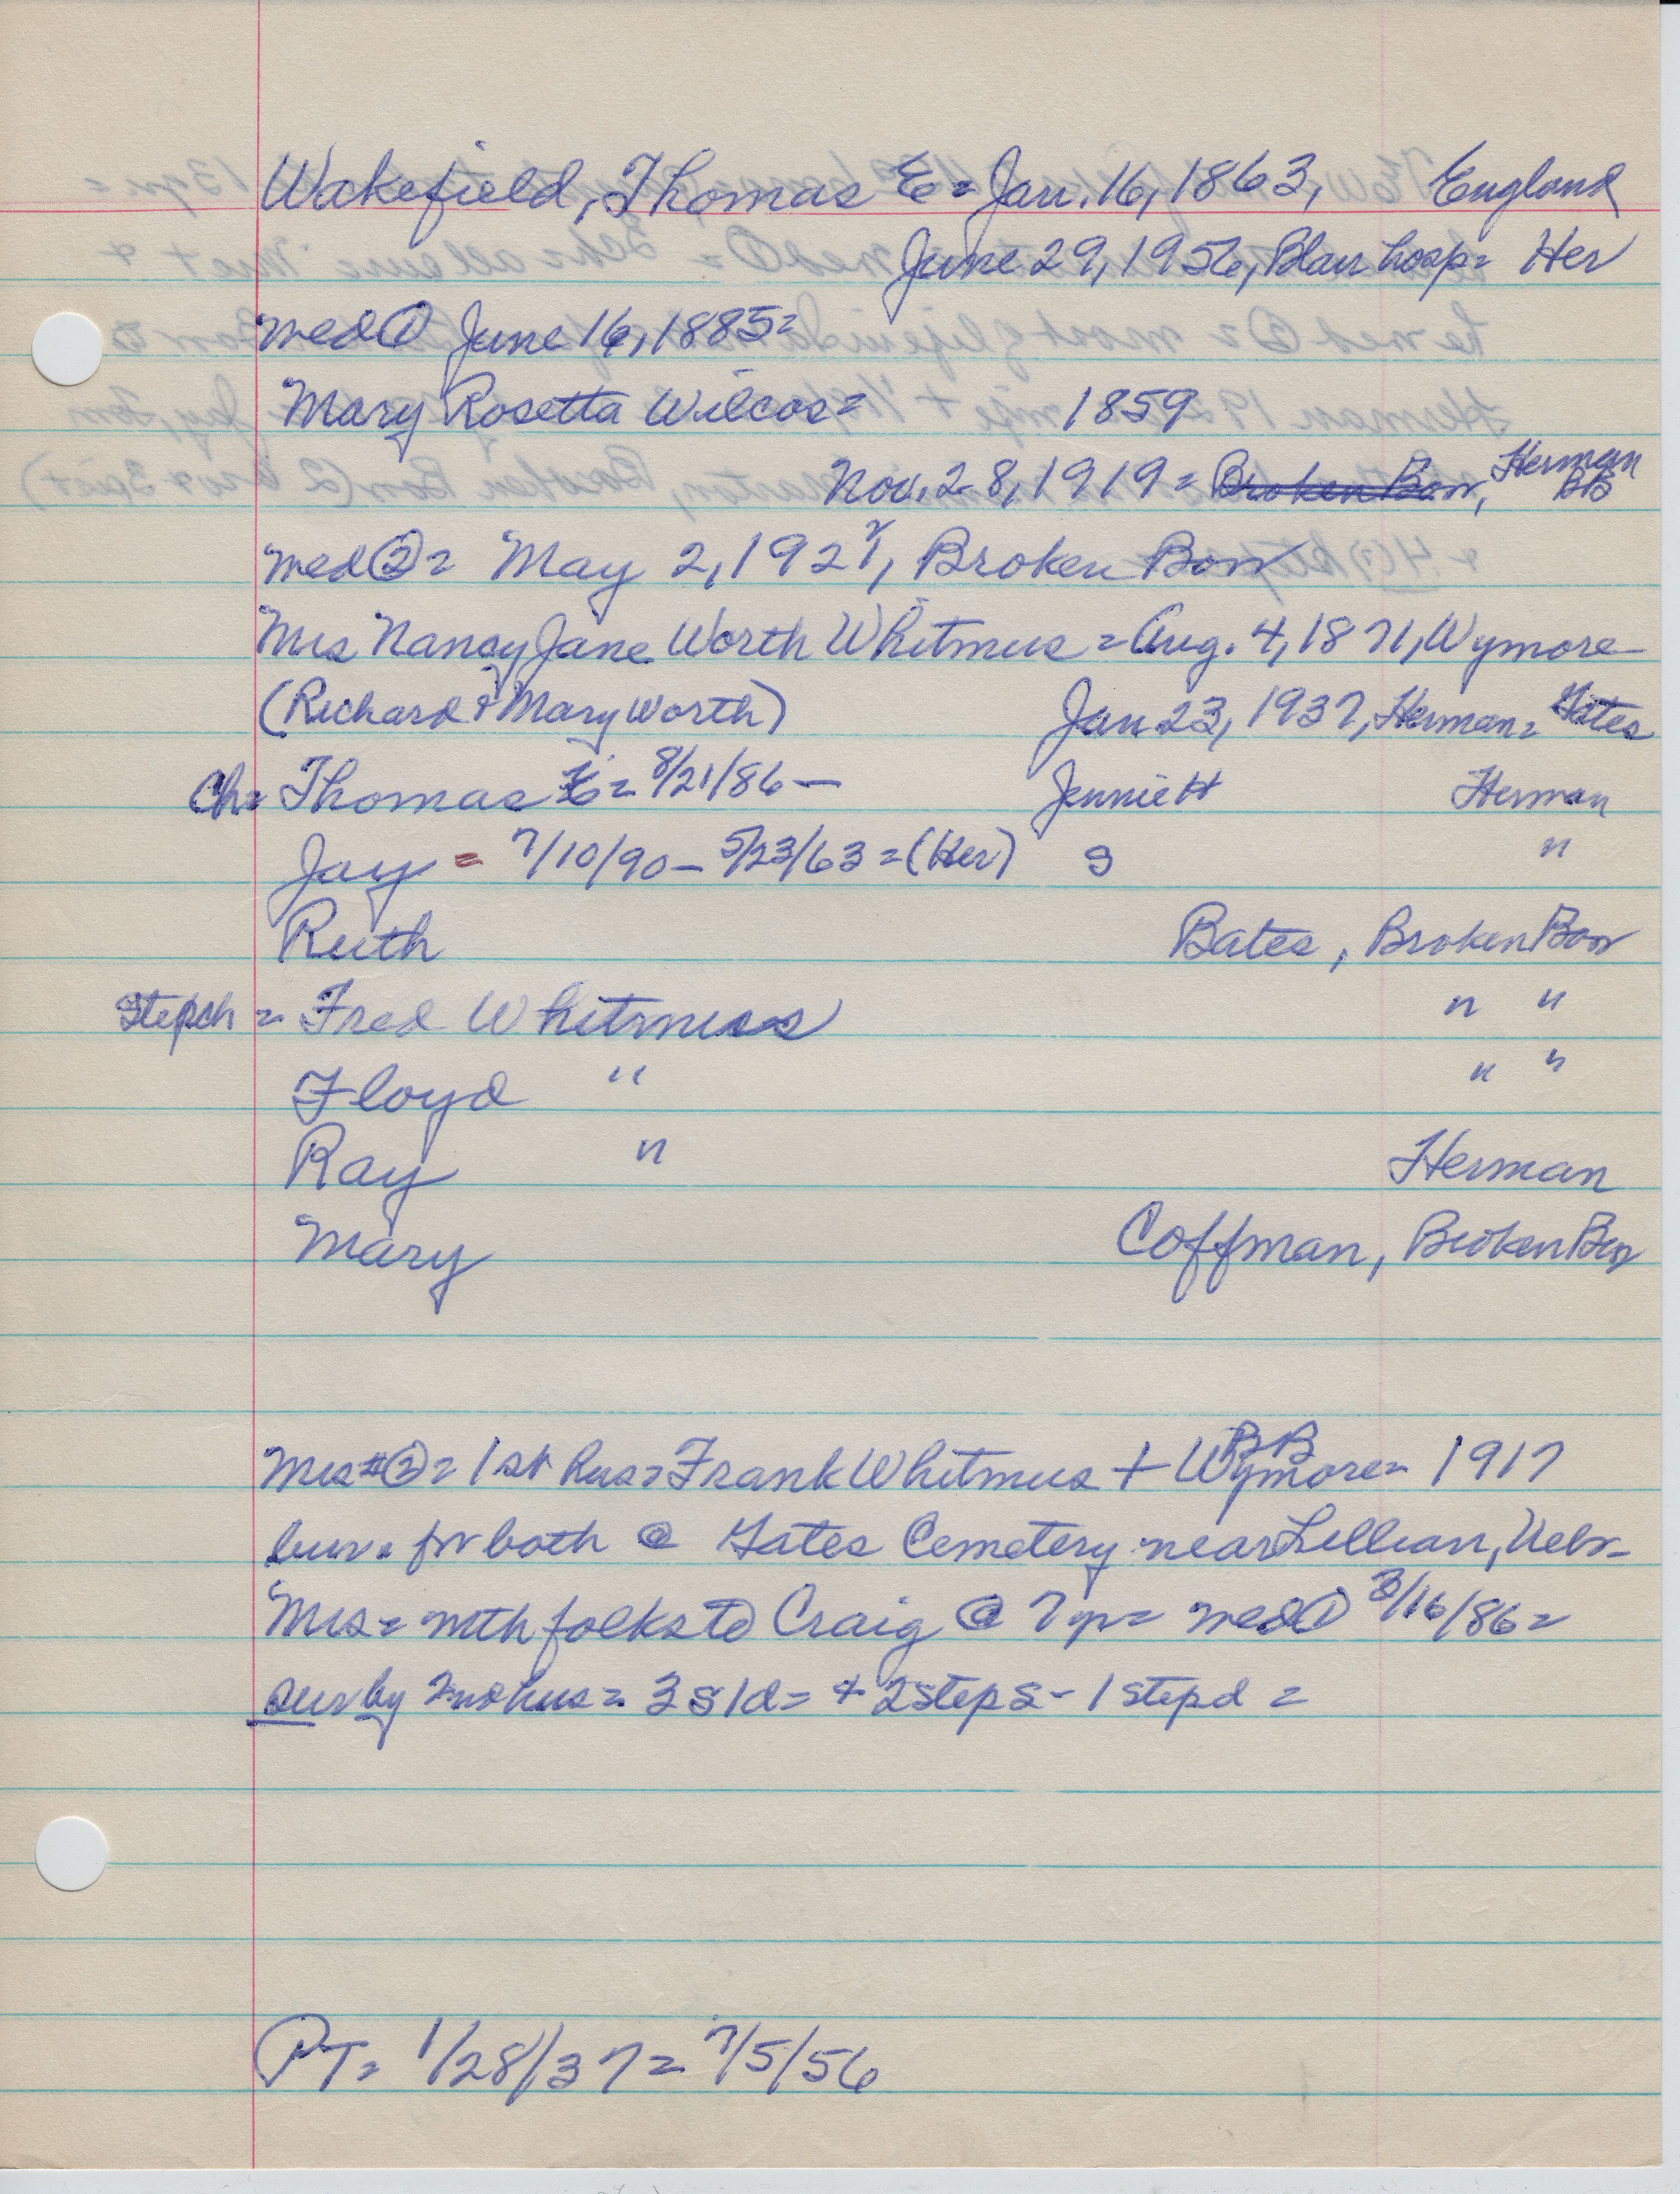 Wakefield, Thomas E = Jan. 16, 1863, England
June 29, 1956, Blair hosp = Her
med ① June 16, 1885 =
Mary Rosetta Wilcox = 1859
Nov. 28, 1919 = Broken Bow, Herman BB
med ② = May 2, 1921, Broken Bow
Mrs Nancy Jane Worth Whitmus = Aug. 4, 1871, Wymore
(Richard & Mary Worth) Jan 23, 1937, Herman = Gates
Ch = Thomas E = 8/21/86 — Jennie H Herman
Jay = 7/10/90 - 5/23/63 = (Her) S "
Ruth Bates, Broken Bow
Stepch = Fred Whitmus " "
Floyd " " "
Ray " Herman
Mary Coffman, Broken Bow
BB
Mrs #② = 1st hus = Frank Whitmus + Wymore = 1917
bur. for both @ Gates Cemetery near Lillian, Nebr-
Mrs = with folks to Craig @ 7 yr = med ① 3/16/86 =
sur by 2nd hus = 3 s 1 d = + 2 step s - 1 step d =
PT = 1/28/37 = 7/5/56